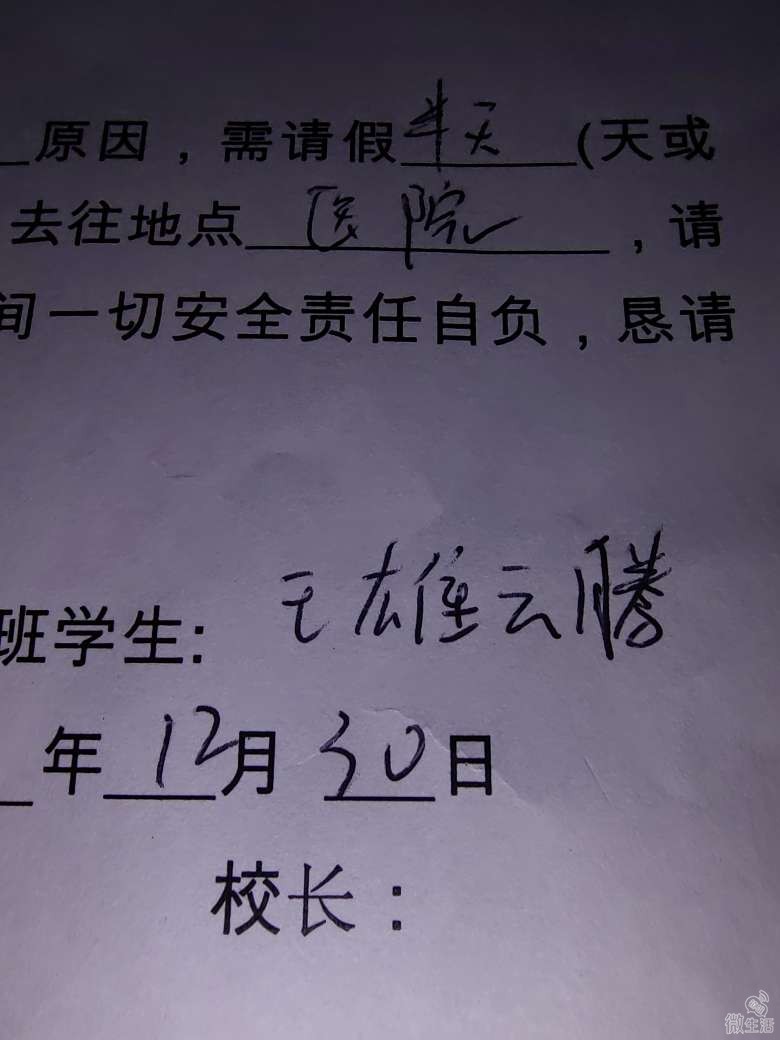 原因，需请假半天(天或
去往地点医院，请
间一切安全责任自负，恳请
班学生:王雄云腾
年12月30日
校长：
微生活